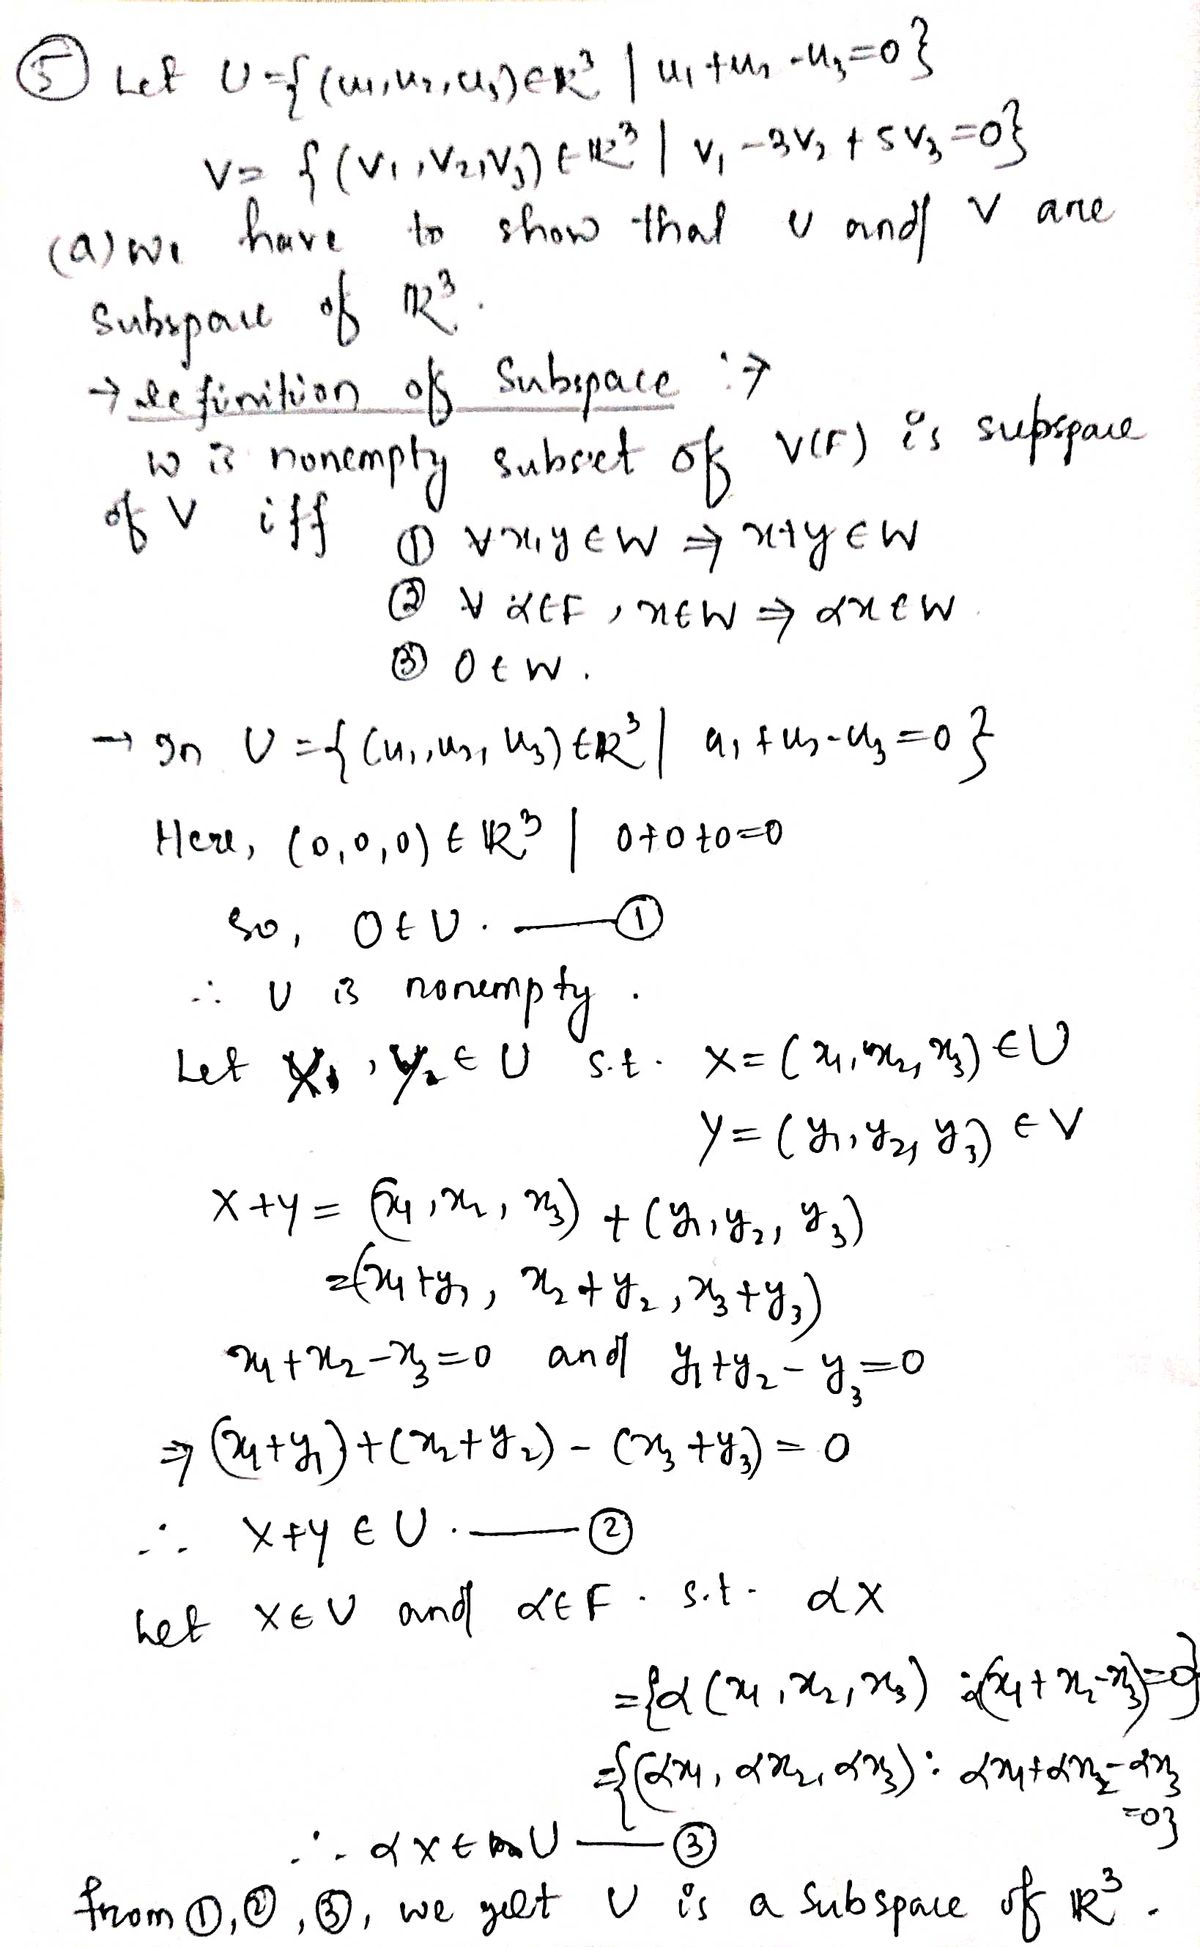 ⑤ Let U={(u₁,u₂,u₃)∈ℝ³ | u₁+u₂-u₃=0}
V= {(v₁,v₂,v₃)∈ℝ³ | v₁-3v₂+5v₃=0}
(a) we have to show that U and V are
subspace of ℝ³.
→ definition of Subspace :→
W is nonempty subset of V(F) is supspace
of V iff ① ∀x,y∈W ⇒ x+y∈W
② ∀ α∈F, x∈W ⇒ αx∈W.
③ 0∈W.
→ In U={(u₁,u₂,u₃)∈ℝ³ | u₁+u₂-u₃=0}
Here, (0,0,0)∈ℝ³ | 0+0+0=0
So, 0∈U. — ①
∴ U is nonempty.
Let X, Y ∈ U s.t. X=(x₁,x₂,x₃)∈U
Y=(y₁,y₂,y₃)∈V
X+Y= (x₁,x₂,x₃)+(y₁,y₂,y₃)
=(x₁+y₁, x₂+y₂, x₃+y₃)
x₁+x₂-x₃=0 and y₁+y₂-y₃=0
⇒ (x₁+y₁)+(x₂+y₂)-(x₃+y₃)=0
∴ X+Y∈U. — ②
Let X∈U and α∈F. s.t. αX
={α(x₁,x₂,x₃) : (x₁+x₂-x₃)=0}
={(αx₁,αx₂,αx₃): αx₁+αx₂-αx₃
=0}
∴ αX∈U — ③
from ①,②,③, we get U is a subspace of ℝ³.